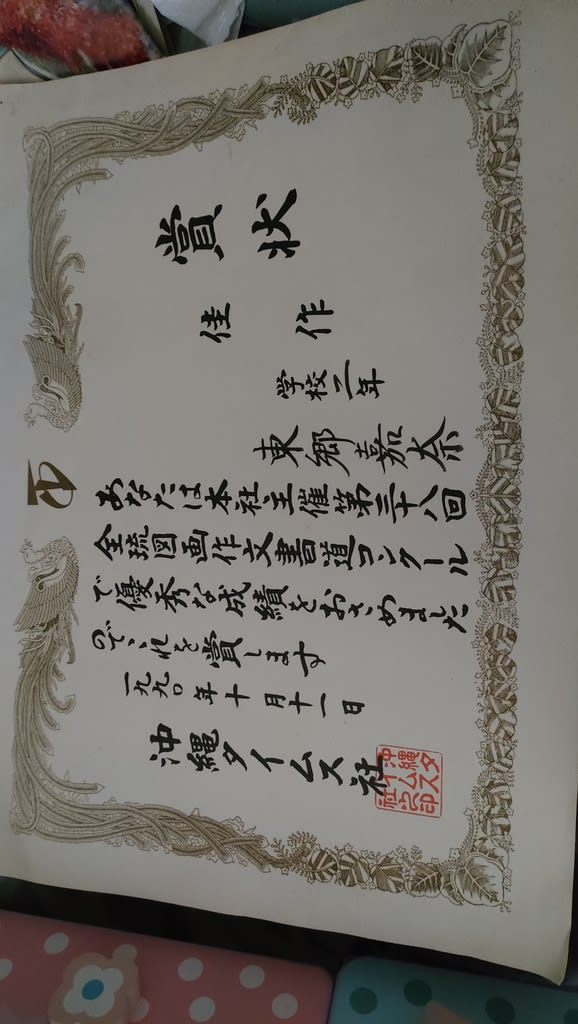 賞状
佳作
学校二年
東郷嘉奈
あなたは本社主催第三十八回
全琉図画作文書道コンクール
で優秀な成績をおさめました
のでこれを賞します
一九九〇年十月十一日
沖縄タイムス社
沖縄タイムス社之印